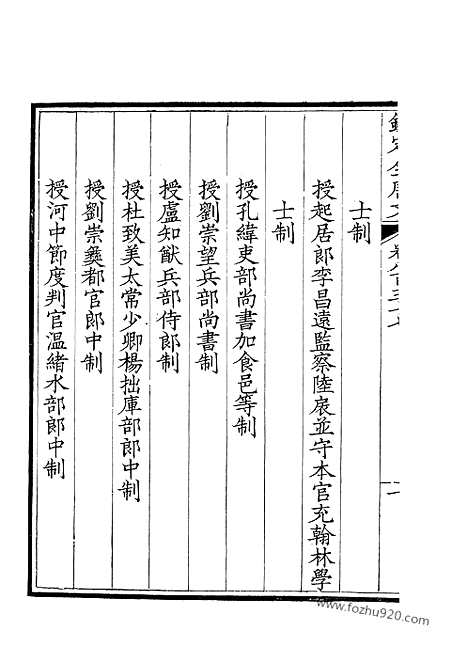 欽定全唐文
卷八百三十七
士制
授起居郎李昌遠監察陸扆並守本官充翰林學
士制
授孔緯吏部尚書加食邑等制
授劉崇望兵部尚書制
授盧知猷兵部侍郎制
授杜致美太常少卿楊拙庫部郎中制
授劉崇彝都官郎中制
授河中節度判官溫緒水部郎中制
www.fozhu920.com